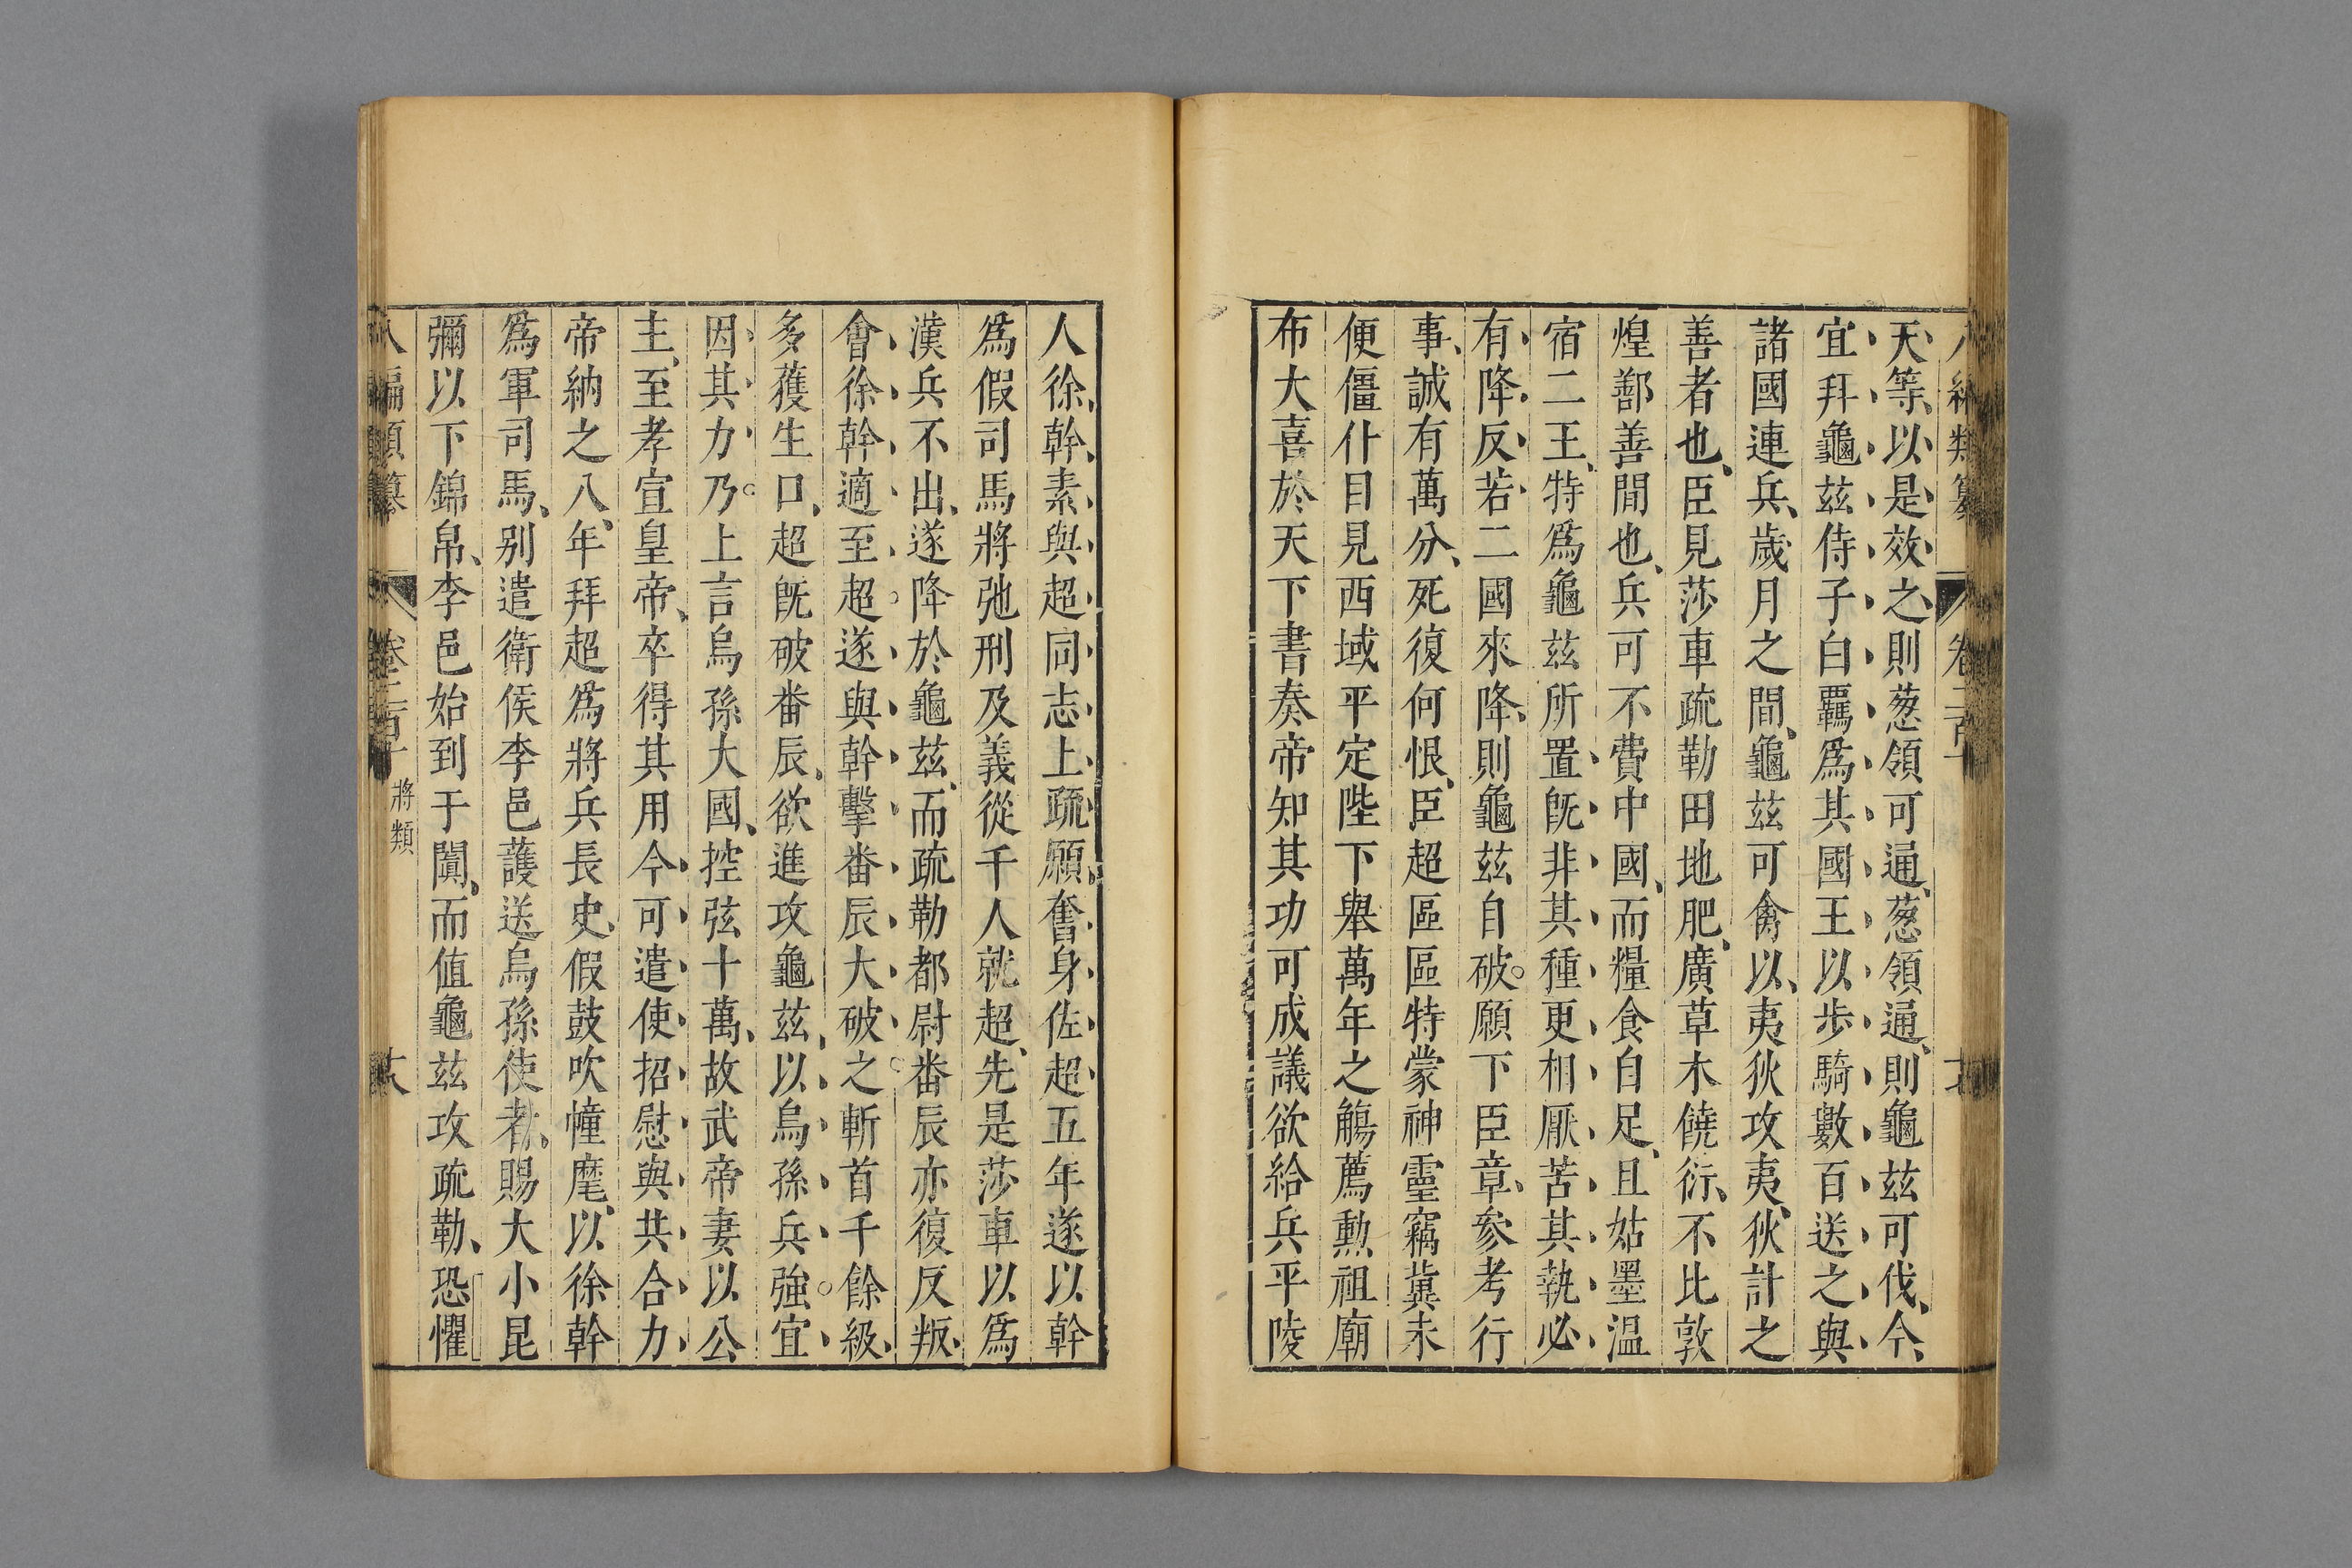 天等以是效之則葱領可通葱領通則龜茲可伐今
宜拜龜茲侍子白覊爲其國王以歩騎數百送之與
諸國連兵歲月之間龜茲可禽以夷狄攻夷狄計之
善者也臣見莎車疏勒田地肥廣草木饒衍不比敦
煌鄯善間也兵可不費中國而糧食自足且姑墨温
宿二王特爲龜茲所置旣非其種更相厭苦其執必
有降反若二國來降則龜茲自破願下臣章參考行
事誠有萬分死復何恨臣超區區特蒙神靈竊冀未
便僵仆目見西域平定陛下舉萬年之觴薦勲祖廟
布大喜於天下書奏帝知其功可成議欲給兵平陵
人徐幹素與超同志上疏願奮身佐超五年遂以幹
爲假司馬將弛刑及義從千人就超先是莎車以爲
漢兵不出遂降於龜茲而疏勒都尉番辰亦復反叛
會徐幹適至超遂與幹擊番辰大破之斬首千餘級
多獲生口超旣破番辰欲進攻龜茲以烏孫兵強宜
因其力乃上言烏孫大國控弦十萬故武帝妻以公
主至孝宣皇帝卒得其用今可遣使招慰與共合力
帝納之八年拜超爲將兵長史假鼓吹幢麾以徐幹
爲軍司馬别遣衛侯李邑護送烏孫使者賜大小昆
彌以下錦帛李邑始到于闐而值龜茲攻疏勒恐懼
將類